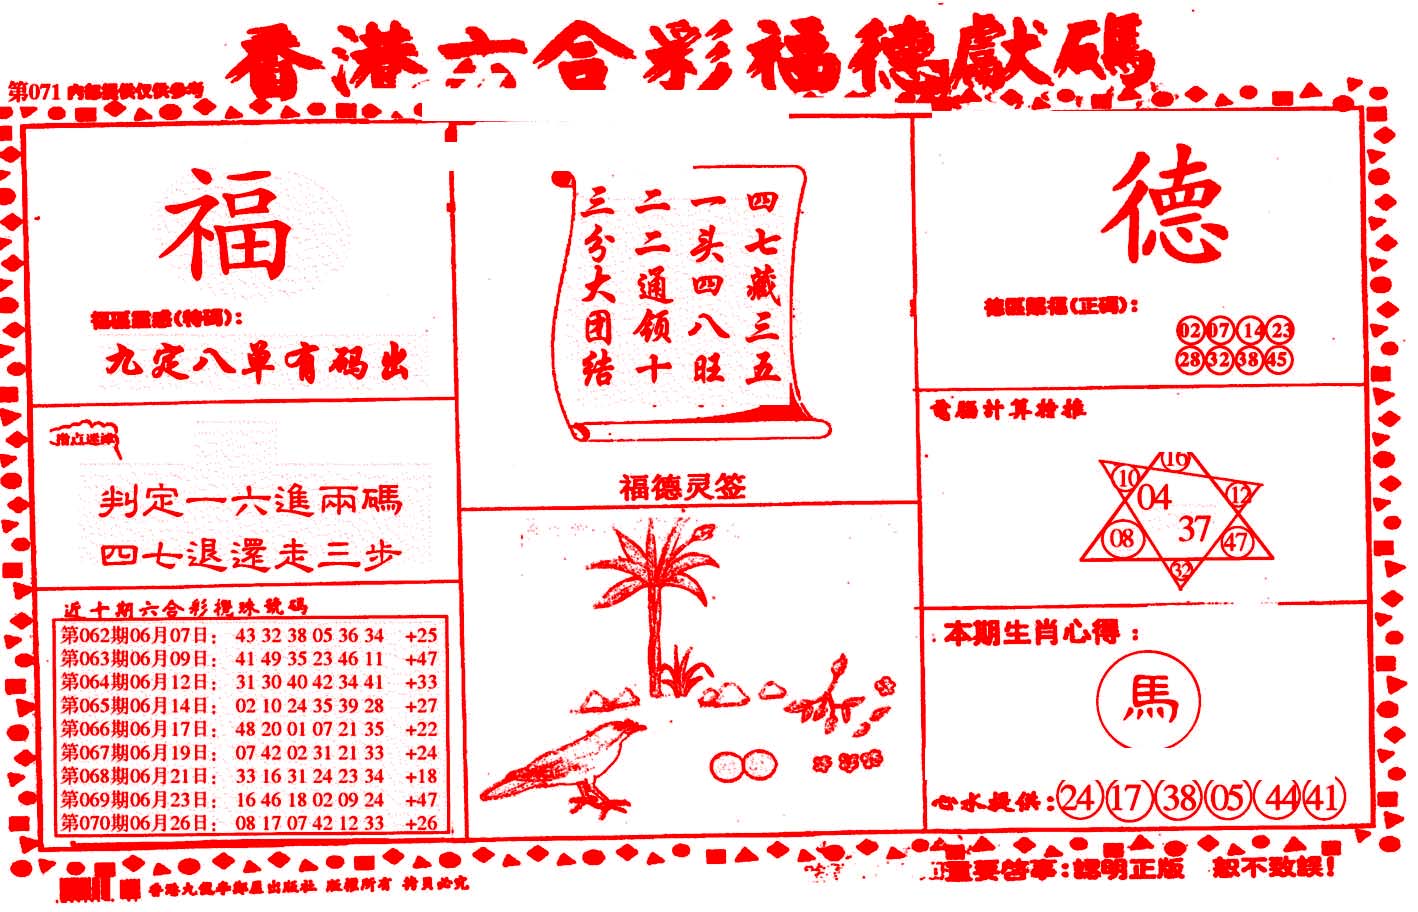 香港六合彩福德獻碼
第071 内部提供仅供参考
福
福區靈感(特碼):
九定八单有码出
指点迷津
判定一六進兩碼
四七退還走三步
近十期六合彩攪珠號碼
第062期06月07日: 43 32 38 05 36 34 +25
第063期06月09日: 41 49 35 23 46 11 +47
第064期06月12日: 31 30 40 42 34 41 +33
第065期06月14日: 02 10 24 35 39 28 +27
第066期06月17日: 48 20 01 07 21 35 +22
第067期06月19日: 07 42 02 31 21 33 +24
第068期06月21日: 33 16 31 24 23 34 +18
第069期06月23日: 16 46 18 02 09 24 +47
第070期06月26日: 08 17 07 42 12 33 +26
四七藏三五
一头四八旺
二二通领十
三分大团结
福德灵签
德
德區賜福(正碼):
02 07 14 23
28 32 38 45
電腦計算於推
16
10 04 12
08 37 47
32
本期生肖心得:
馬
心水提供: 24 17 38 05 44 41
香港九龍 出版社 版權所有 拷貝必究
重要啓事:認明正版 恕不致誤!